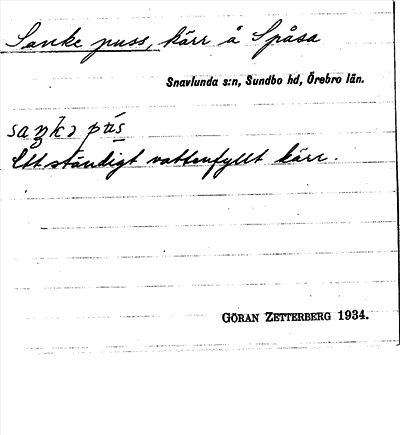 Sanke puss, kärr å Spåsa
Snavlunda s:n, Sundbo hd, Örebro län.
Ett ständigt vattenfyllt kärr.
GÖRAN ZETTERBERG 1934.